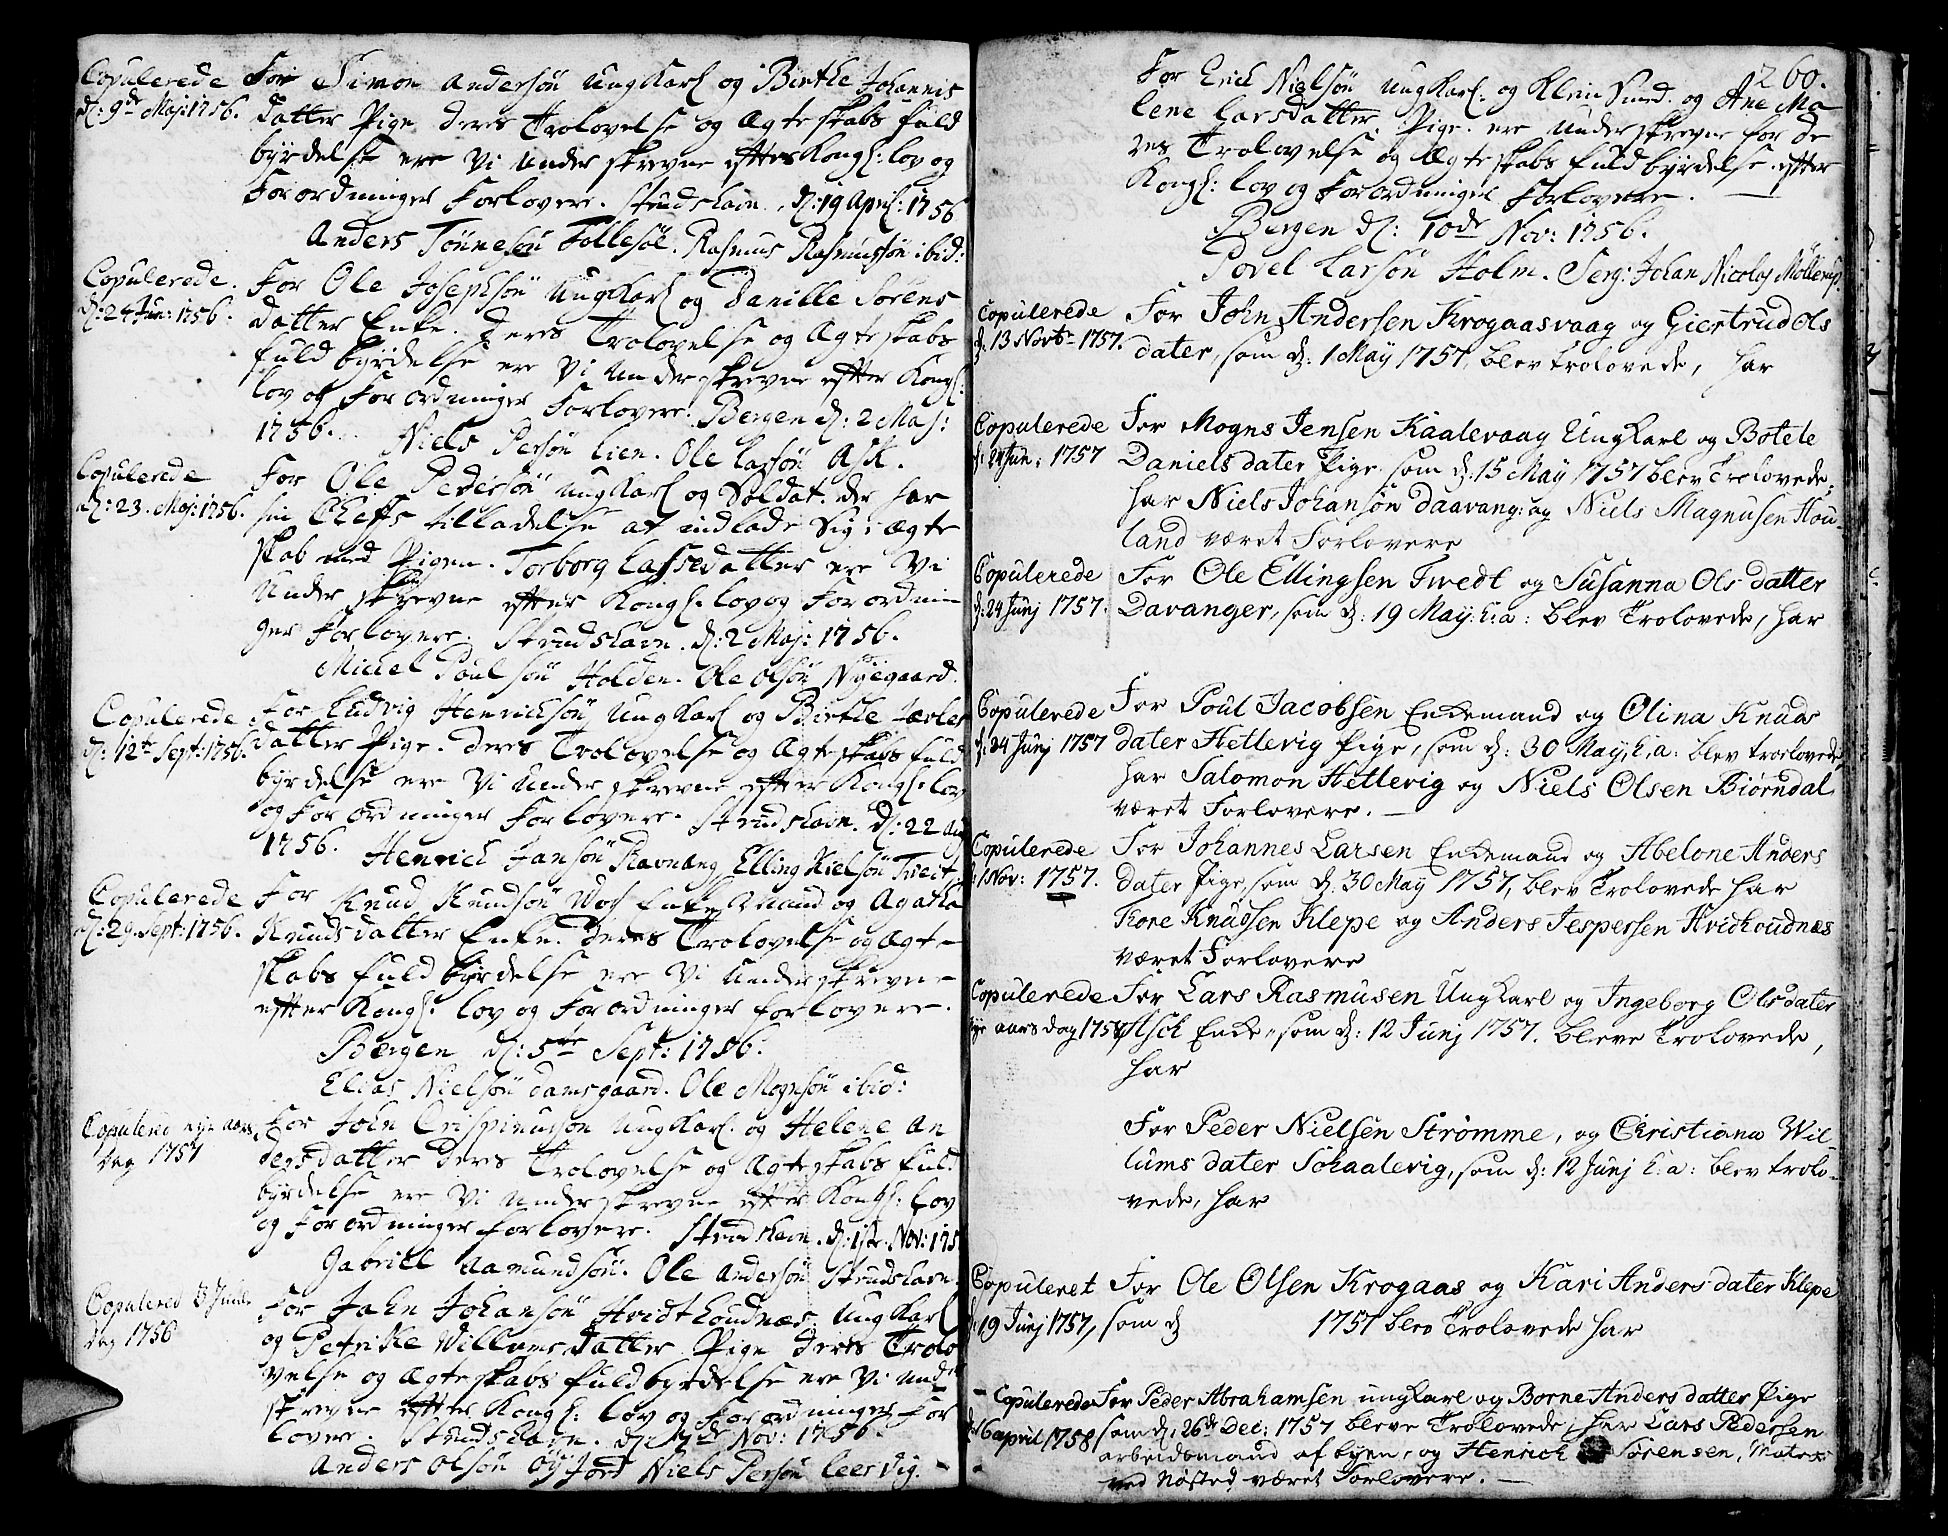 Copulerede
d: 9de Maj: 1756.
For Simon Andersøn UngKarl og Birthe Johannis
datter Pige deres Trolovelse og Ægteskabs fuld
byrdelse ere Vi underskrevne efter Kongl: lov og
Forordninger Forlovere. Strudshavn. d: 19 April: 1756
Anders Tønnesøn Follesøe. Rasmus Rasmussøn ibid:
Copulerede.
d: 24 Jun: 1756.
For Ole Josephsøn UngKarl og Danille Sørens
datter Enke. deres Trolovelse og Ægteskabs
fuldbyrdelse ere Vi Underskrevne efter Kongl:
lov og Forordninger Forlovere. Bergen d: 2 Maj:
1756. Niels Persøn Lien. Ole Larsøn Ask.
Copulerede
d: 23. Maj: 1756.
For Ole Pedersøn UngKarl og Soldat. der har
sin Cheffs tilladelse at indlade Sig i ægte
skab med Pigen. Torborg Lassedatter ere Vi
Underskrevne efter Kongl: lov og Forordnin
ger Forlovere. Strudshavn. d: 2 Maj: 1756.
Mickel Poulsøn Holden. Ole Olsøn Nyegaard.
Copulerede
d: 12te Sept: 1756.
For Ludvig Henricksøn UngKarl og Birthe
datter Pige. deres Trolovelse og Ægteskabs fuld
byrdelse ere Vi Underskrevne efter Kongl: lov
og Forordninger Forlovere. Strudshavn. d: 22 Aug
1756. Henrick Jansøn Ravnang, Elling Nielsøn Tveit
Copulerede
d: 29. Sept: 1756.
For Knud Knudsøn Enke Mand og Agatha
Knudsdatter Enke. deres Trolovelse og Ægte
skabs fuldbyrdelse ere Vi Underskrevne
efter Kongl: lov og Forordninger forlovere.
Bergen d: 5te Sept: 1756.
Elias Nielsøn damsgaard. Ole Mognsøn ibid:
Copulered nye aars
dag 1757
For John Crispinusøn UngKarl. og Helene An
dersdatter deres Trolovelse og Ægteskabs fuld
byrdelse ere Vi Underskrevne efter Kongl: lov
og Forordninger forlovere. Strudshavn. d: 1ste Nov: 175
Gabriel Aamundsøn. Ole Andersøn Strudshavn.
Copulered 3 Jule
dag 1756
For John Johansøn Hvidthoudnæs UngKarl
og Petrikke Willumsdatter Pige deres Trolo
velse og Ægteskabs fuldbyrdelse ere Vi Under
skrevne efter Kongl: lov og Forordninger For
lovere. Strudshavn. d: Nov: 1756.
Anders Olsøn Niels Persøn Leervig.
260.
For Erick Nielsøn UngKarl. og Klein Smed. og Ane Ma
lene Larsdatter. Pige. ere Underskrevne for de
res Trolovelse og Ægteskabs fuldbyrdelse efter
Kongl: lov og Forordninger Forlovere.
Bergen d: 10de Nov: 1756.
Povel Larsøn Holm. Serg: Johan Nicolas Møllerup.
Copulerede
d. 13 Novbr 1757.
For John Andersen Krogaasvaag og Giertrud Ols
dater, som d: 1 May 1757, blev trolovede, har
Copulerede
d: 24 Jun: 1757
For Mogns Jensen Kaalevaag UngKarl og Botele
Danielsdater Pige som d: 15 May 1757 blev Trolovede,
har Niels Johansøn Daavang: og Niels Magnusen Hou
land været Forlovere
Copulerede
d: 24 Junj 1757.
For Ole Ellingsen Twedt og Susanna Olsdatter
Davanger, som d: 19 May: h: a: blev Trolovede, har
Copulerede
d: 24 Junj 1757
For Poul Jacobsen Enkemand og Olina Knuds
dater Hetlevig Pige, som d: 30 May, h: a: blev trolovede,
har Salomon Hetlevig og Niels Olsen Biørndal
været Forlovere.
Copulerede
1 Nov: 1757.
For Johannes Larsen Enkemand og Abelone Anders
dater Pige, som d. 30 May 1757, blev Trolovede har
Tore Knudsen Klepe og Anders Jespersen Hvidhoudnæs
været Forlovere
Copulerede
nye aarsdag 1758
For Lars Rasmusen UngKarl og Ingeborg Olsdater
Asck Enke, som d: 12 Junj 1757. bleve Trolovede,
har
For Peder Nielsen Strømme, og Christiana Wil-
lumsdater Schaalevig, som d: 12 Junj h: a: blev trolo-
vede, har
Copuleret
d: 19 Junj 1757,
For Ole Olsen Krogaas og Kari Andersdater Klepe
som d 1757 blev Trolovede har
Copulerede
d: 16 april 1758
For Peder Abrahamsen ungKarl og Borne Andersdatter Pige
som d: 26de Dec: 1757 bleve Trolovede, har Lars Pedersen
arbeidsmand af byen, og Henrich Sørensen, Matros
ved Nøsted været Forlovere.